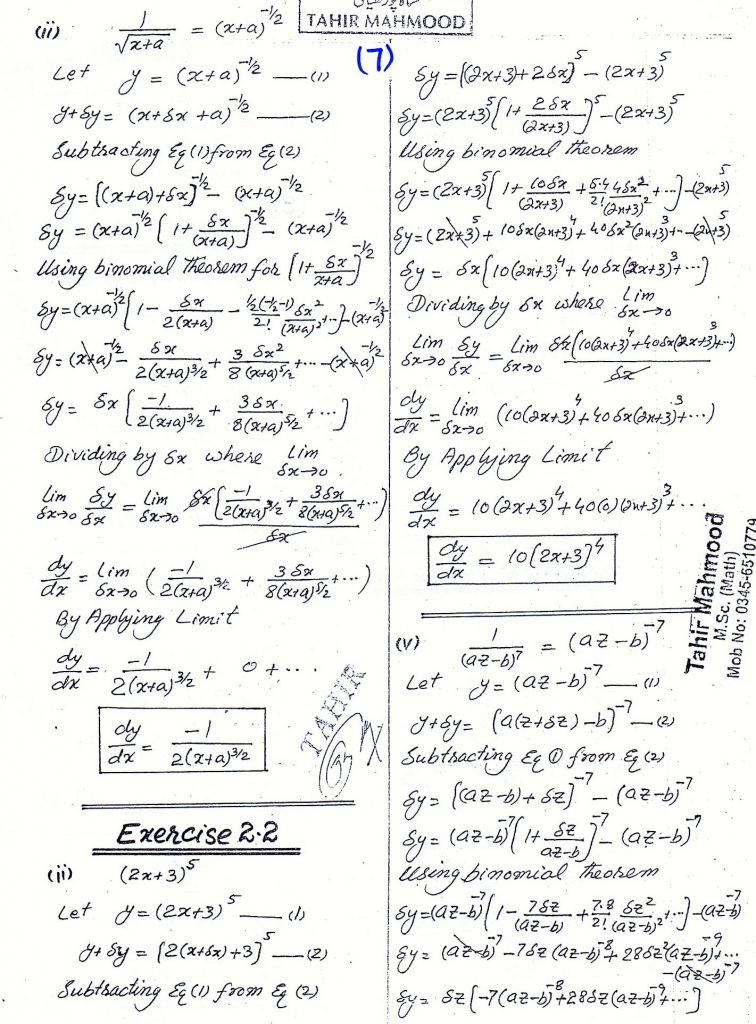 TAHIR MAHMOOD
(7)
(ii) 1/√(x+a) = (x+a)^-1/2
Let y = (x+a)^-1/2 —(1)
y+δy = (x+δx+a)^-1/2 —(2)
Subtracting Eq(1) from Eq(2)
δy = [(x+a)+δx]^-1/2 - (x+a)^-1/2
δy = (x+a)^-1/2 [1+ δx/(x+a)]^-1/2 - (x+a)^-1/2
Using binomial theorem for [1+ δx/(x+a)]^-1/2
δy = (x+a)^-1/2 [1 - δx/2(x+a) - ½(-½-1)/2! δx²/(x+a)² + ...] - (x+a)^-1/2
δy = (x+a)^-1/2 - δx/2(x+a)^3/2 + 3δx²/8(x+a)^5/2 + ... - (x+a)^-1/2
δy = δx [-1/2(x+a)^3/2 + 3δx/8(x+a)^5/2 + ...]
Dividing by δx where Lim δx→0
Lim δx→0 δy/δx = Lim δx→0 δx[-1/2(x+a)^3/2 + 3δx/8(x+a)^5/2 + ...]/δx
dy/dx = Lim δx→0 (-1/2(x+a)^3/2 + 3δx/8(x+a)^5/2 + ...)
By Applying Limit
dy/dx = -1/2(x+a)^3/2 + 0 + ...
dy/dx = -1/2(x+a)^3/2
TAHIR
Exercise 2.2
(ii) (2x+3)^5
Let y = (2x+3)^5 —(1)
y+δy = [2(x+δx)+3]^5 —(2)
Subtracting Eq(1) from Eq (2)
δy = [(2x+3)+2δx]^5 - (2x+3)^5
δy = (2x+3)^5 [1+ 2δx/(2x+3)]^5 - (2x+3)^5
Using binomial theorem
δy = (2x+3)^5 [1+ 10δx/(2x+3) + 5·4/2! 4δx²/(2x+3)² + ...] - (2x+3)^5
δy = (2x+3)^5 + 10δx(2x+3)^4 + 40δx²(2x+3)^3 + -- (2x+3)^5
δy = δx [10(2x+3)^4 + 40δx(2x+3)^3 + ...]
Dividing by δx where Lim δx→0
Lim δx→0 δy/δx = Lim δx→0 δx[10(2x+3)^4 + 40δx(2x+3)^3 + ...]/δx
dy/dx = Lim δx→0 (10(2x+3)^4 + 40δx(2x+3)^3 + ...)
By Applying Limit
dy/dx = 10(2x+3)^4 + 40(0)(2x+3)^3 + ...
dy/dx = 10(2x+3)^4
(v) 1/(az-b)^7 = (az-b)^-7
Let y = (az-b)^-7 —(1)
y+δy = [a(z+δz)-b]^-7 —(2)
Subtracting Eq ① from Eq (2)
δy = [(az-b)+δz]^-7 - (az-b)^-7
δy = (az-b)^-7 [1+ δz/(az-b)]^-7 - (az-b)^-7
Using binomial theorem
δy = (az-b)^-7 [1 - 7δz/(az-b) + 7·8/2! δz²/(az-b)² + ...] - (az-b)^-7
δy = (az-b)^-7 - 7δz(az-b)^-8 + 28δz²(az-b)^-9 + ...
-(az-b)^-7
δy = δz [-7(az-b)^-8 + 28δz(az-b)^-9 + ...]
Tahir Mahmood
M.Sc. (Math)
Mob No: 0345-6510779